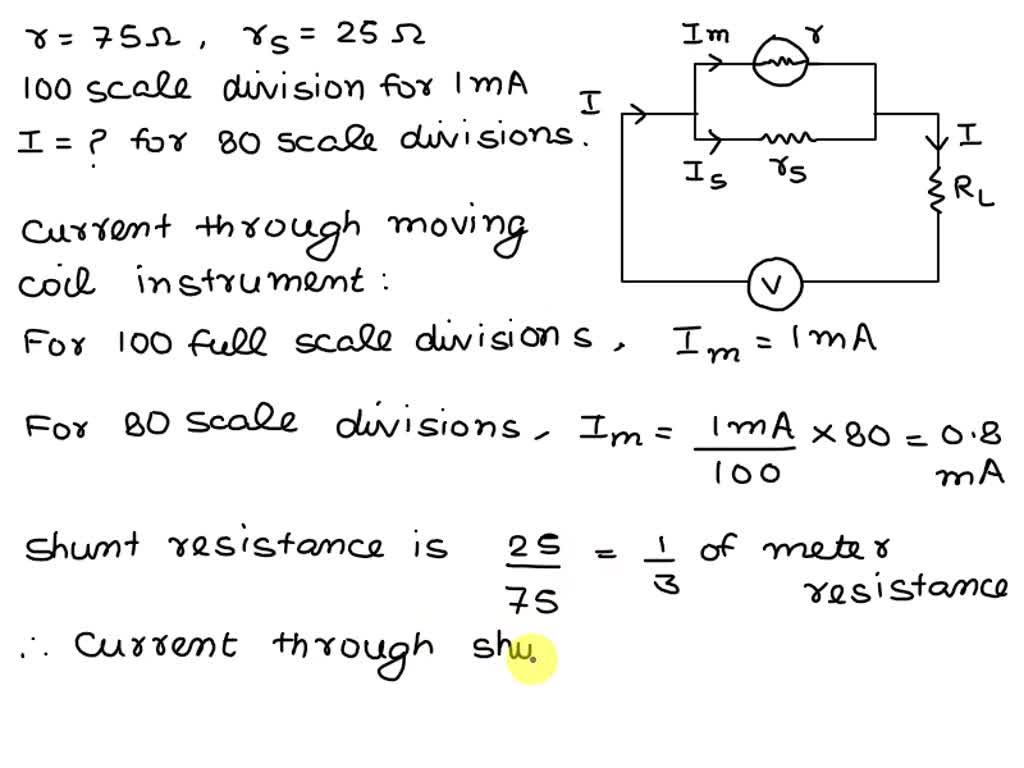 r = 75Ω, rs = 25 Ω
100 scale division for 1mA
I = ? for 80 scale divisions.
Im r
I
Is rs
I
RL
V
Current through moving
coil instrument:
For 100 full scale divisions, Im = 1mA
For 80 scale divisions, Im = 1mA/100 × 80 = 0.8
mA
Shunt resistance is 25/75 = 1/3 of meter
resistance
∴ Current through shu